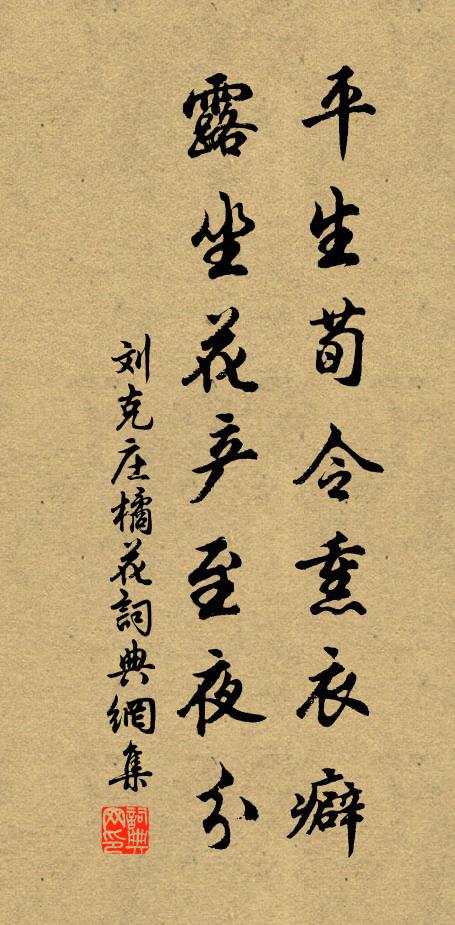 平生荀令熏衣癖
露坐花产至夜分
刘克庄橘花詞典網集
詞典网印